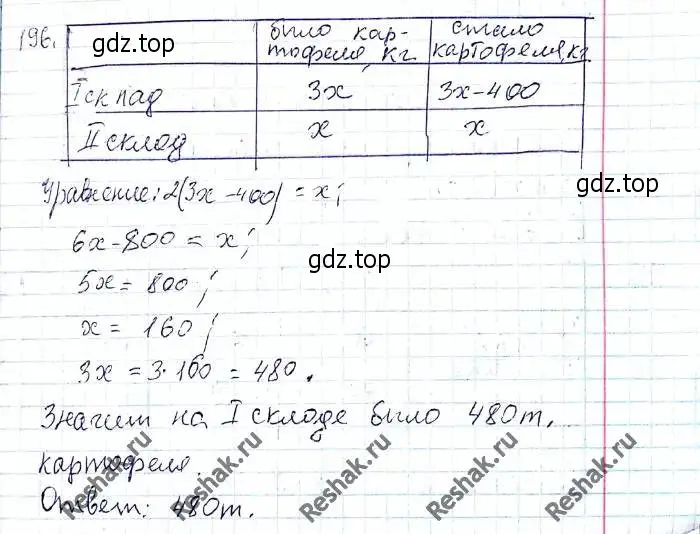 196.
gdz.top
было кар-
тофеля, кг
стало
картофеля, кг
I склад
3x
3x-400
II склад
x
x
Уравнение: 2(3x-400) = x;
6x-800 = x;
gdz.top
5x = 800;
x = 160;
3x = 3·160 = 480.
Значит на I складе было 480т.
картофеля.
Ответ: 480т.
Reshak.ru
Reshak.ru
Reshak.ru
Reshak.ru